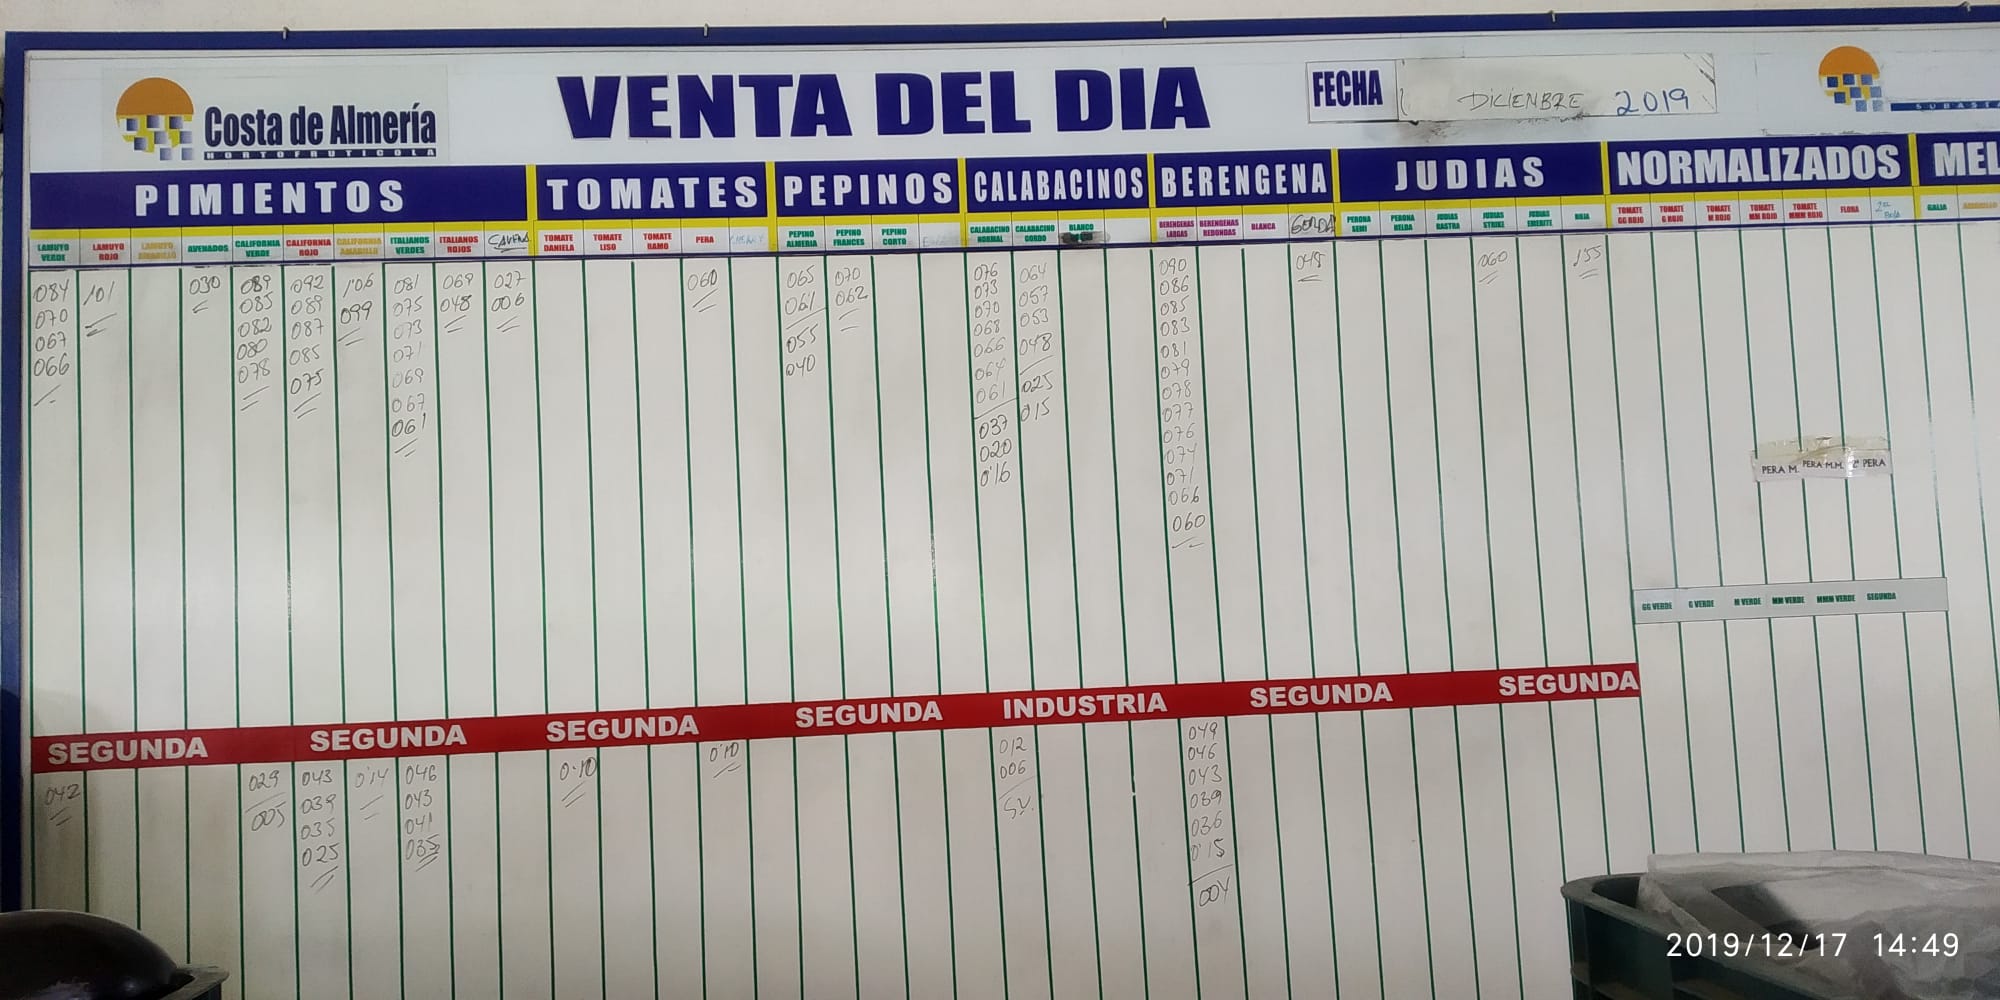 Costa de Almería
HORTOFRUTICOLA
VENTA DEL DIA
FECHA DICIEMBRE 2019
SUBASTA
PIMIENTOS TOMATES PEPINOS CALABACINOS BERENGENA JUDIAS NORMALIZADOS MEL
LAMUYO VERDE
LAMUYO ROJO
LAMUYO AMARILLO
AVENADOS
CALIFORNIA VERDE
CALIFORNIA ROJO
CALIFORNIA AMARILLO
ITALIANOS VERDES
ITALIANOS ROJOS
TOMATE DANIELA
TOMATE LISO
TOMATE RAMO
PERA
PEPINO ALMERIA
PEPINO FRANCES
PEPINO CORTO
CALABACINO NORMAL
CALABACINO GORDO
BLANCO
BERENGENAS LARGAS
BERENGENAS REDONDAS
BLANCA
GORDA
PERONA SEMI
PERONA HELDA
JUDIAS RASTRA
JUDIAS STRIKE
JUDIAS EMERITE
ROJA
TOMATE GG ROJO
TOMATE G ROJO
TOMATE M ROJO
TOMATE MM ROJO
TOMATE MMM ROJO
FLORA
GALIA
AMARILLO
084
070
067
066
101
030
089
085
082
080
078
092
089
087
085
075
1'06
099
081
075
073
071
069
067
061
069
048
027
006
060
065
061
055
040
070
062
076
073
070
068
066
064
061
037
020
0'16
064
057
053
048
025
015
090
086
085
083
081
079
078
077
076
074
071
066
060
048
060
155
PERA M. PERA M.M. 2ª PERA
GG VERDE G VERDE M VERDE MM VERDE MMM VERDE SEGUNDA
SEGUNDA SEGUNDA SEGUNDA SEGUNDA INDUSTRIA SEGUNDA SEGUNDA
042
029
005
043
039
035
025
0'14
046
043
041
035
0'10
0'10
012
006
049
046
043
039
036
0'15
004
2019/12/17 14:49